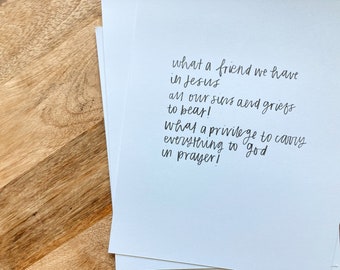 what a friend we have
in Jesus
all our sins and griefs
to bear!
what a privilege to carry
everything to god
in prayer!